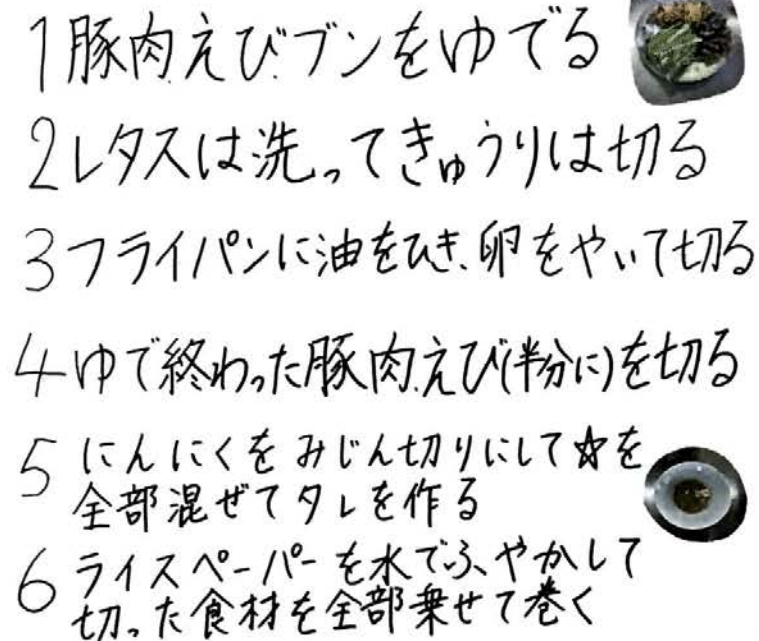 1豚肉、えび、ブンをゆでる
2レタスは洗ってきゅうりは切る
3フライパンに油をひき、卵をやいて切る
4ゆで終わった豚肉、えび(半分に)を切る
5 にんにくをみじん切りにして☆を
全部混ぜてタレを作る
6 ライスペーパーを水でふやかして
切った食材を全部乗せて巻く